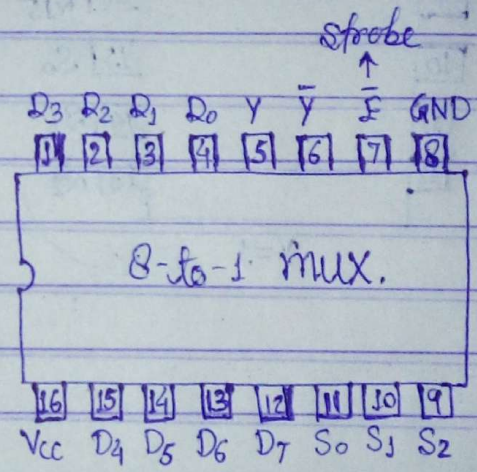 strobe
D3 D2 D1 D0 Y Y̅ E̅ GND
1 2 3 4 5 6 7 8
8-to-1 mux.
16 15 14 13 12 11 10 9
Vcc D4 D5 D6 D7 S0 S1 S2